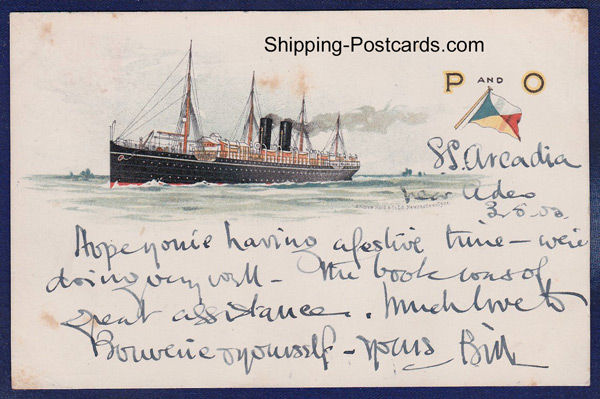 Shipping-Postcards.com
P AND O
S.S. Arcadia
near Aden
Hope you're having a festive time - we're
doing very well - The book was of
great assistance. Much love to
& yourself - Yours Bill